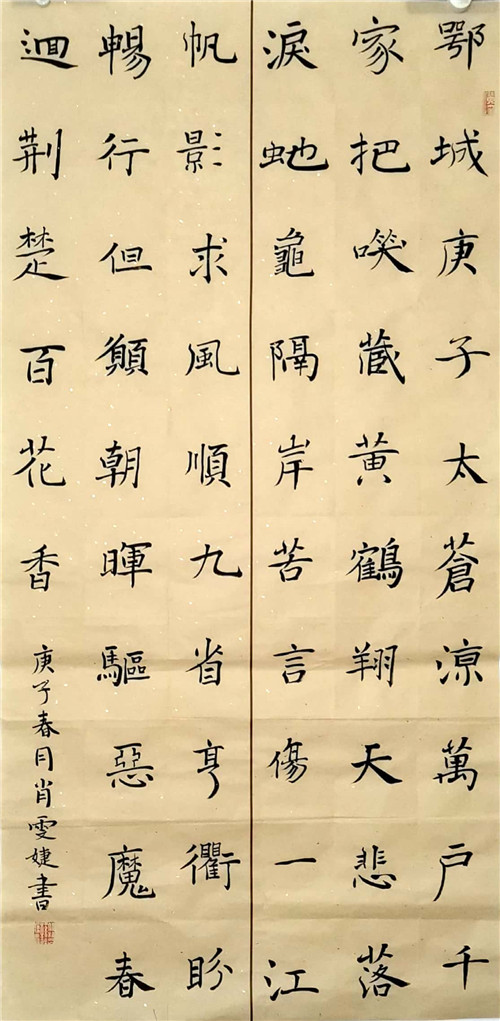 鄂城庚子太蒼涼萬户千
家把㗛藏黄鶴翔天悲落
淚虵龜隔岸苦言傷一江
帆影求風順九省亨衢盼
暢行但願朝暉驅惡魔春
迴荆楚百花香
庚子春月肖雯婕書